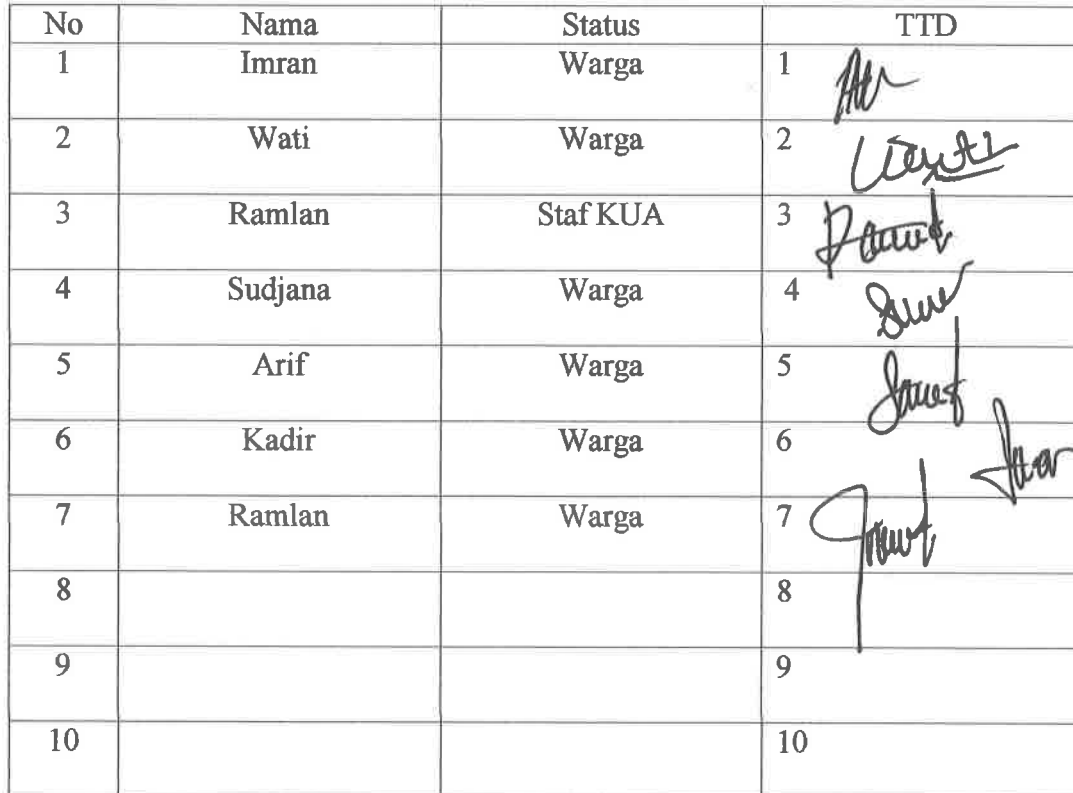 No Nama Status TTD
1 Imran Warga 1
2 Wati Warga 2
3 Ramlan Staf KUA 3
4 Sudjana Warga 4
5 Arif Warga 5
6 Kadir Warga 6
7 Ramlan Warga 7
8 8
9 9
10 10